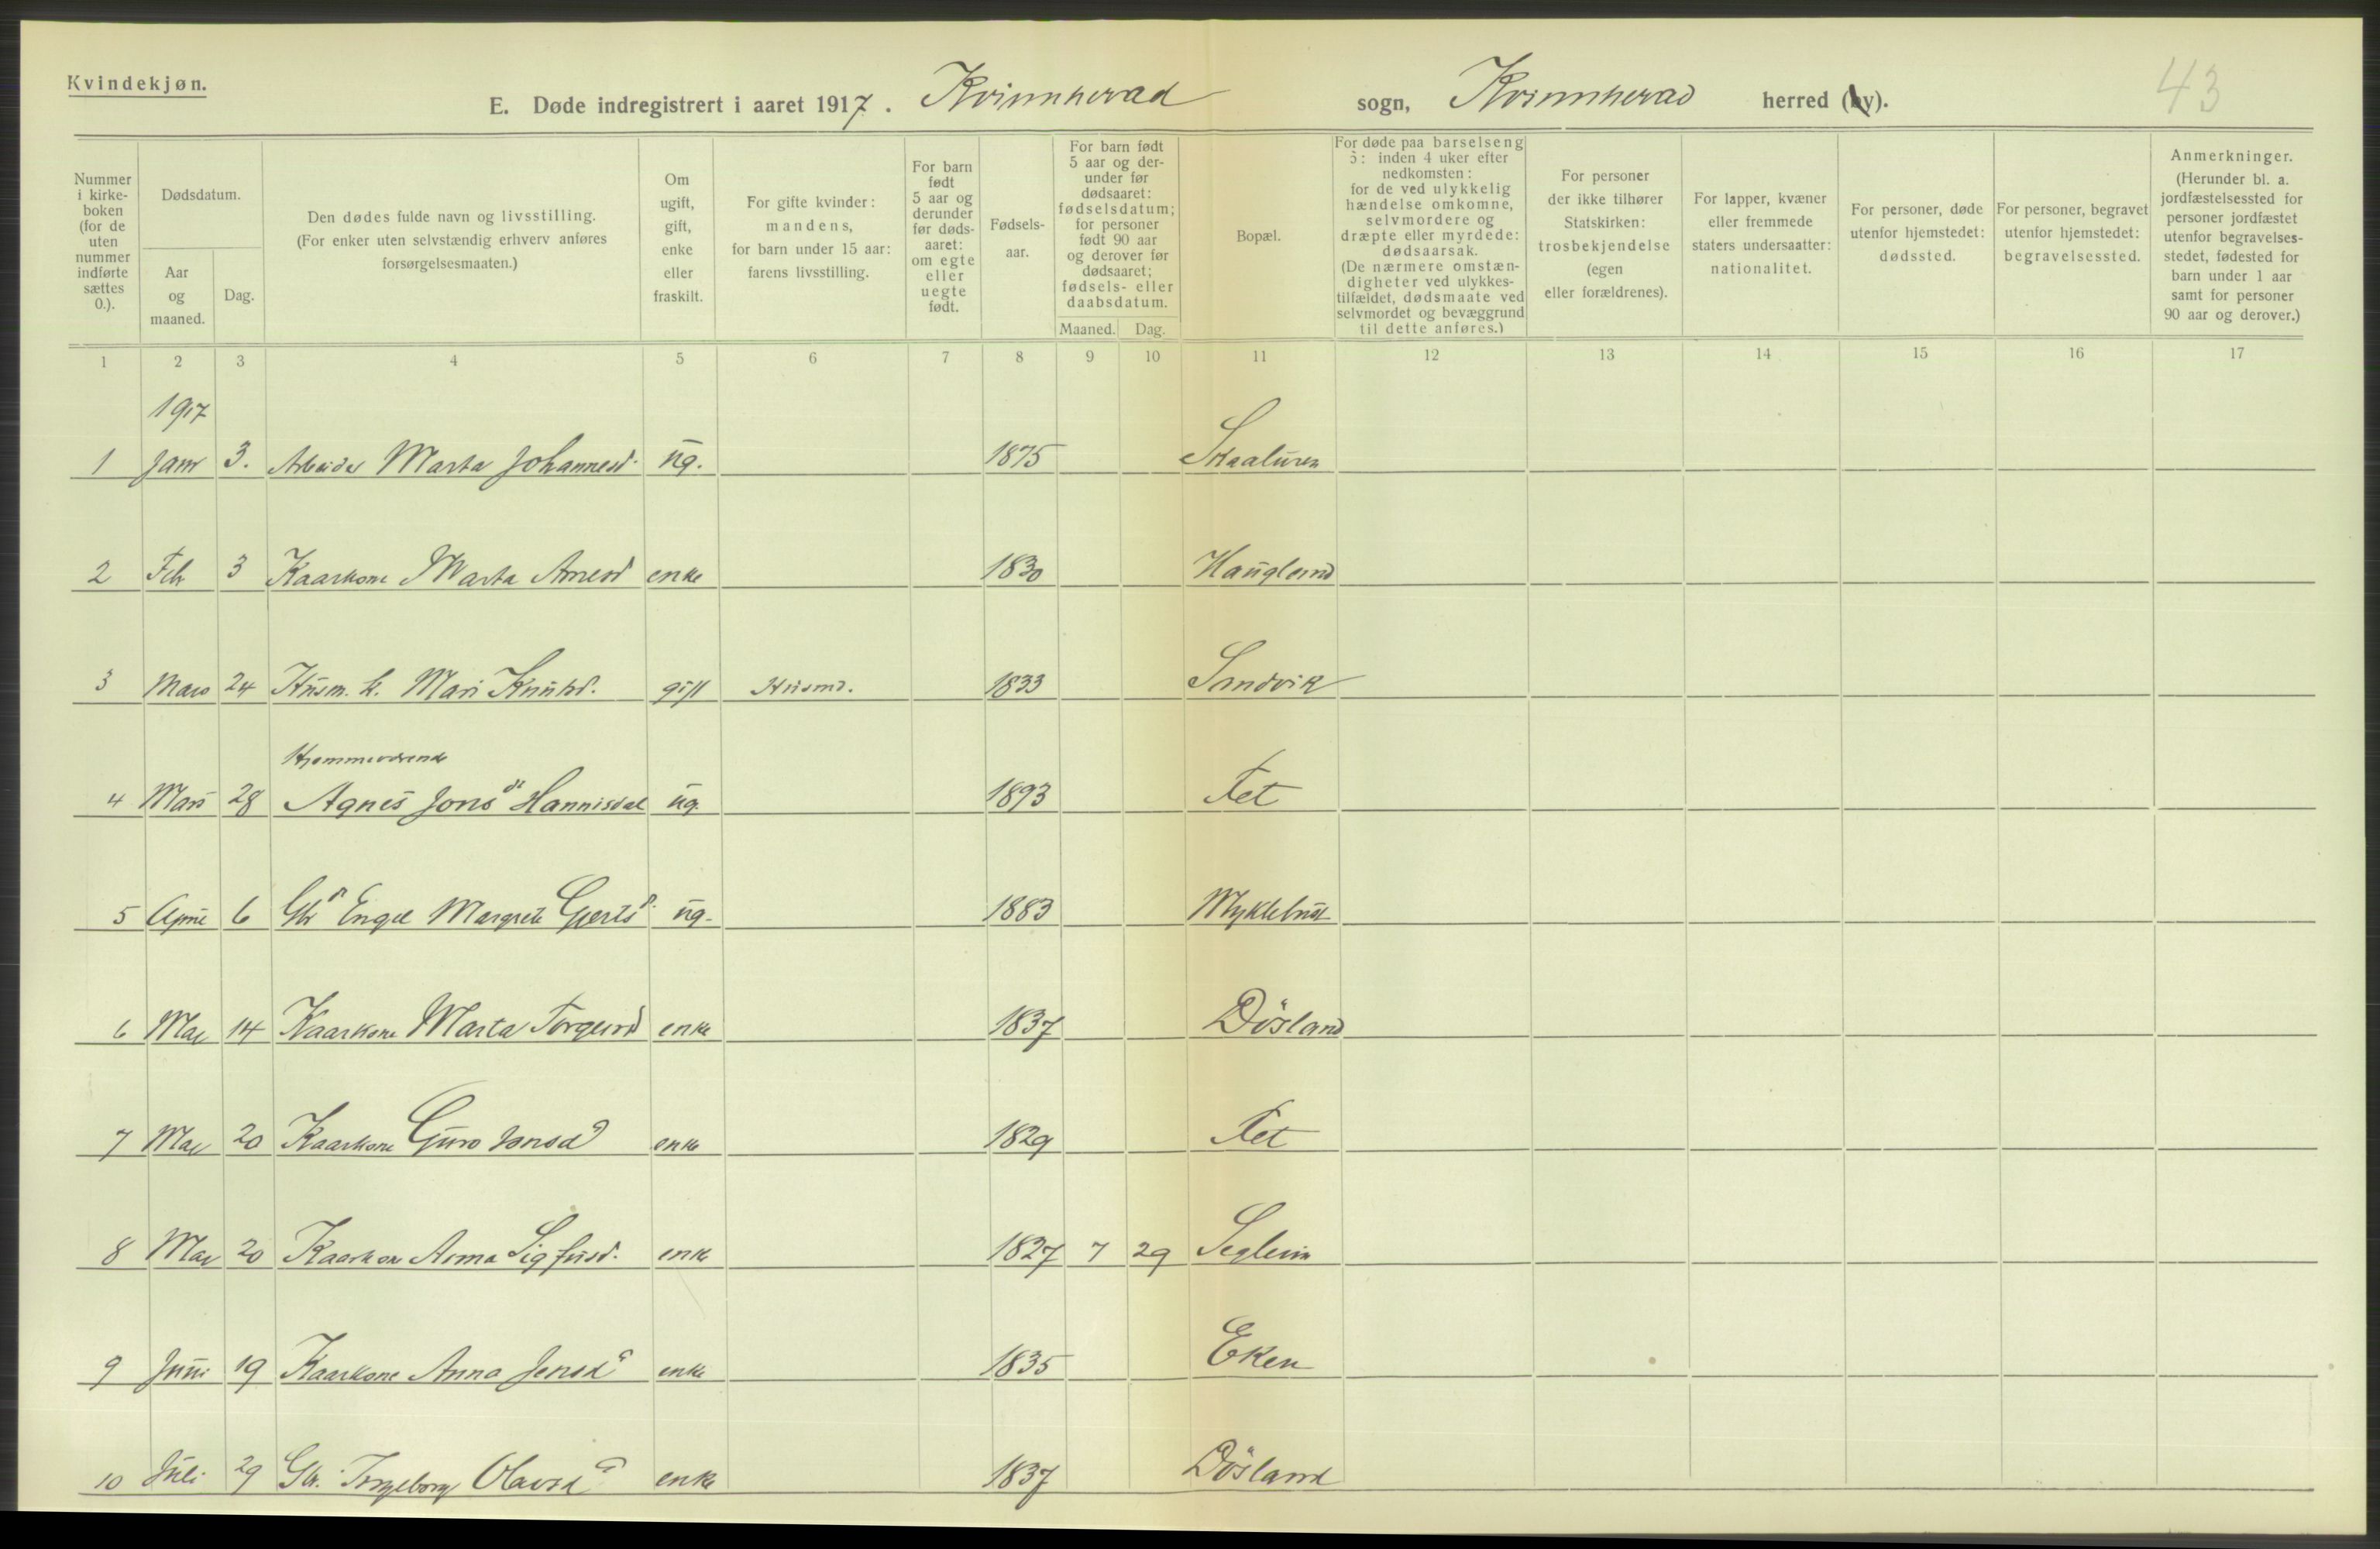 Kvindekjøn.
E. Døde indregistrert i aaret 1917. Kvinnherad sogn, Kvinnherad herred (by).
43
Nummer i kirke- boken (for de uten nummer indførte sættes 0.).
Dødsdatum.
Aar og maaned.
Dag.
Den dødes fulde navn og livsstilling.
(For enker uten selvstændig erhverv anføres forsørgelsesmaaten.)
Om ugift, gift, enke eller fraskilt.
For gifte kvinder: mandens, for barn under 15 aar: farens livsstilling.
For barn født 5 aar og derunder før døds- aaret: om egte eller uegte født.
Fødsels- aar.
For barn født 5 aar og der- under før dødsaaret: fødselsdatum; for personer født 90 aar og derover før dødsaaret; fødsels- eller daabsdatum.
Maaned. Dag.
Bopæl.
For døde paa barselseng ɔ: inden 4 uker efter nedkomsten: for de ved ulykkelig hændelse omkomne, selvmordere og dræpte eller myrdede: dødsaarsak. (De nærmere omstæn- digheter ved ulykkes- tilfældet, dødsmaate ved selvmordet og bevæggrund til dette anføres.)
For personer der ikke tilhører Statskirken: trosbekjendelse (egen eller forældrenes).
For lapper, kvæner eller fremmede staters undersaatter: nationalitet.
For personer, døde utenfor hjemstedet: dødssted.
For personer, begravet utenfor hjemstedet: begravelsessted.
Anmerkninger. (Herunder bl. a. jordfæstelsessted for personer jordfæstet utenfor begravelses- stedet, fødested for barn under 1 aar samt for personer 90 aar og derover.)
1 2 3 4 5 6 7 8 9 10 11 12 13 14 15 16 17
1917
1 Janr 3. Arbeider Marta Johannesd. ug. 1875 Skaaluren
2 Feb 3 Kaarkone Marta Arnesd enke 1830 Hauglund
3 Mars 24 Husm. k. Mari Knutsd. gift Husmd. 1833 Sandvik
Hjemmeværende
4 Mars 28 Agnes Jonsd Hannisdal ug. 1893 Fet
5 April 6 Gbr Engel Margrete Gjertsd. ug. 1883 Myklebust
6 Mai 14 Kaarkone Marta Torgeirsd enke 1837 Dösland
7 Mai 20 Kaarkone Guro Jonsd enke 1829 Fet
8 Mai 20 Kaarkone Anna Sigfusd. enke 1827 7 29 Seglem
9 Juni 19 Kaarkone Anna Jensd enke 1835 Eken
10 Juli 29 Gbr. Ingeborg Olavsd enke 1837 Dösland